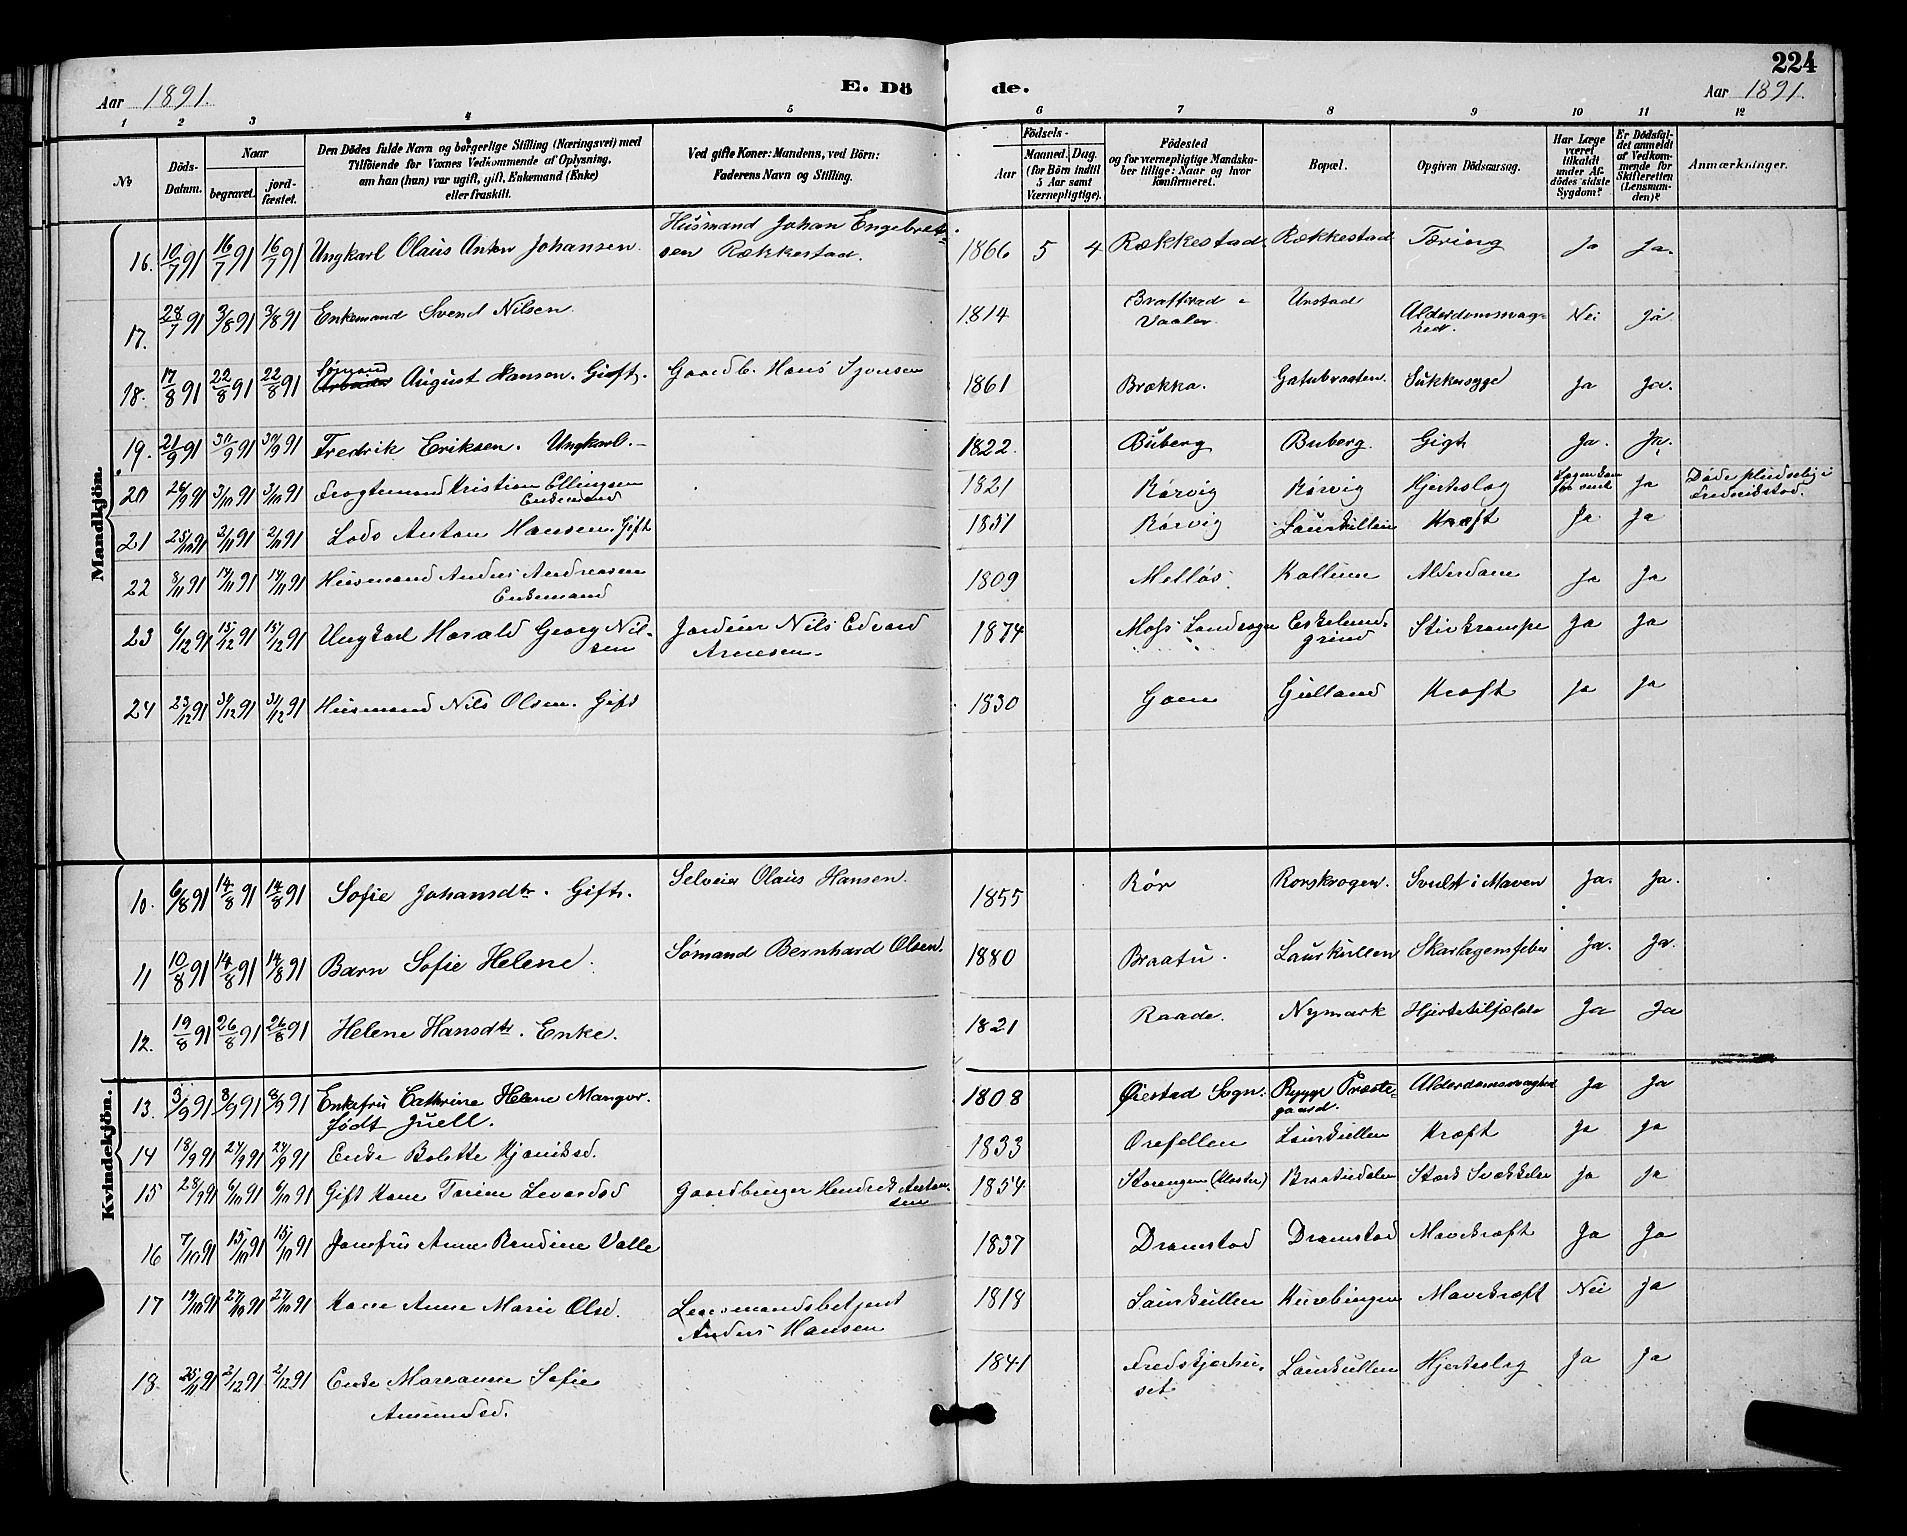 224
Aar 1891.
E. Dö de.
Aar 1891.
1 2 3 4 5 6 7 8 9 10 11 12
№
Döds-Datum.
Naar begravet. jordfæstet.
Den Dödes fulde Navn og borgerlige Stilling (Næringsvei) med Tilföiende for Voxnes Vedkommende af Oplysning, om han (hun) var ugift, gift, Enkemand (Enke) eller fraskilt.
Ved gifte Koner: Mandens, ved Börn: Faderens Navn og Stilling.
Födsels-
Aar
Maaned. Dag.
(for Börn indtil 5 Aar samt Værnepligtige).
Födested og for værnepligtige Mandskaber tillige: Naar og hvor konfirmeret.
Bopæl.
Opgiven Dödsaarsag.
Har Læge været tilkaldt under Afdödes sidste Sygdom?
Er Dödsfaldet anmeldt af Vedkommende for Skifteretten (Lensmanden)?
Anmærkninger.
Mandkjön.
16. 10/7 91 16/7 91 16/7 91 Ungkarl Olaus Anton Johansen. Husmand Johan Engebretsen Rækkestad. 1866 5 4 Rækkestad Rækkestad Tæring Ja Ja.
17. 28/7 91 3/8 91 3/8 91 Enkemand Svend Nilsen 1814 Vaaler. Unstad Alderdomssvaghed. Nei Ja
18. 17/8 91 22/8 91 22/8 91 Sømand Arbeider August Hansen. Gift. Gaardb. Hans 1861 Brækka. Gatubraaten. Sukkersyge Ja Ja.
19. 21/9 91 30/9 91 30/9 91 Fredrik Eriksen. Ungkarl. 1822. Buberg Buberg. Gigt Ja. Ja.
20 26/9 91 3/10 91 3/10 91 Kristian Ellingsen Enkemand 1821 Rørvig Rørvig Hjerteslag Ja Døde pludselig i Fredrikstad.
21 25/10 91 2/11 91 2/11 91 Lods Anton Hansen. Gift 1851 Rørvig Laurkullen Kræft Ja Ja
22 8/11 91 14/11 91 14/11 91 Husmand Anders Andreasen Enkemand 1809 Melløs Kallum Alderdom Ja Ja
23 6/12 91 15/12 91 15/12 91 Ungkarl Harald Georg Nilsen Nils Edvard Arnesen. 1874 Moss Landsogn Eskelundgrind Stivkrampe Ja Ja
24 23/12 91 31/12 91 31/12 91 Husmand Nils Olsen. Gift 1830 Goen Gulland Kræft Ja Ja
Kvindekjön.
10. 6/8 91 14/8 91 14/8 91 Sofie Johansdtr. Gift. Selveier Olaus Hansen. 1855 Rør Rørskrogen. Svulst i Maven Ja. Ja.
11 10/8 91 14/8 91 14/8 91 Barn Sofie Helene. Sømand Bernhard Olsen. 1880 Braatu. Laurkullen Skarlagensfeber Ja. Ja.
12. 19/8 91 26/8 91 26/8 91 Helene Hansdtr. Enke. 1821 Raade. Nymark Hjertetilfælde Ja Ja
13. 3/9 91 8/9 91 8/9 91 Enkefru Cathrine Helene Mangor. født Juell. 1808 Øiestad Sogn. Rygge Præstegaard. Alderdomssvaghed Ja Ja
14 18/9 91 24/9 91 24/9 91 Enke Bolette 1833 Orefellen Laurkullen Kræft Ja Ja
15 28/9 91 6/10 91 6/10 91 Gift Kone Torine Levardsd Gaardbruger Hendrik 1854 Storengen (Kloster) Braatudalen Stark Svækkelse Ja Ja
16 7/10 91 15/10 91 15/10 91 Jomfru Anne Randine Valle 1837 Dramstad Dramstad Mavekræft Ja Ja
17 19/10 91 27/10 91 27/10 91 Kone Anne Marie Olsd. Lensmandsbetjent Anders Hansen 1818 Laurkullen Kurebingen Mavekræft Nei Ja
18 25/11 91 2/12 91 2/12 91 Enke Marianne Sofie Amundsd. 1841 Laurkullen Hjerteslag Ja Ja